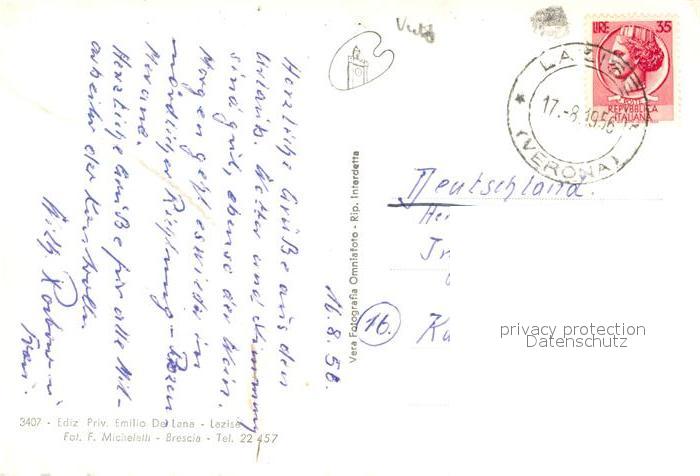 16.8.56.
Herzliche Grüße aus dem
Urlaub. Wetter und Stimmung
sind gut, ebenso der Wein.
Morgen geht es wieder in
nördlicher Richtung - Bozen
Meran.
Herzliche Grüße für alle Mit-
arbeiter der Kontrolle.
Wilh. u.
Frau.
LIRE 35
POSTE
REPVBBLICA
ITALIANA
LAZISE
17.-8.1956
(VERONA)
Deutschland.
16.
privacy protection
Datenschutz
Vera Fotografia Omniafoto - Rip. Interdetta
3407 - Ediz. Priv. Emilio De Lana - Lazise
Fot. F. Michelelli - Brescia - Tel. 22 457